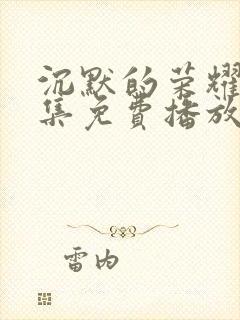 沉默的荣耀
集免费播放
雷内